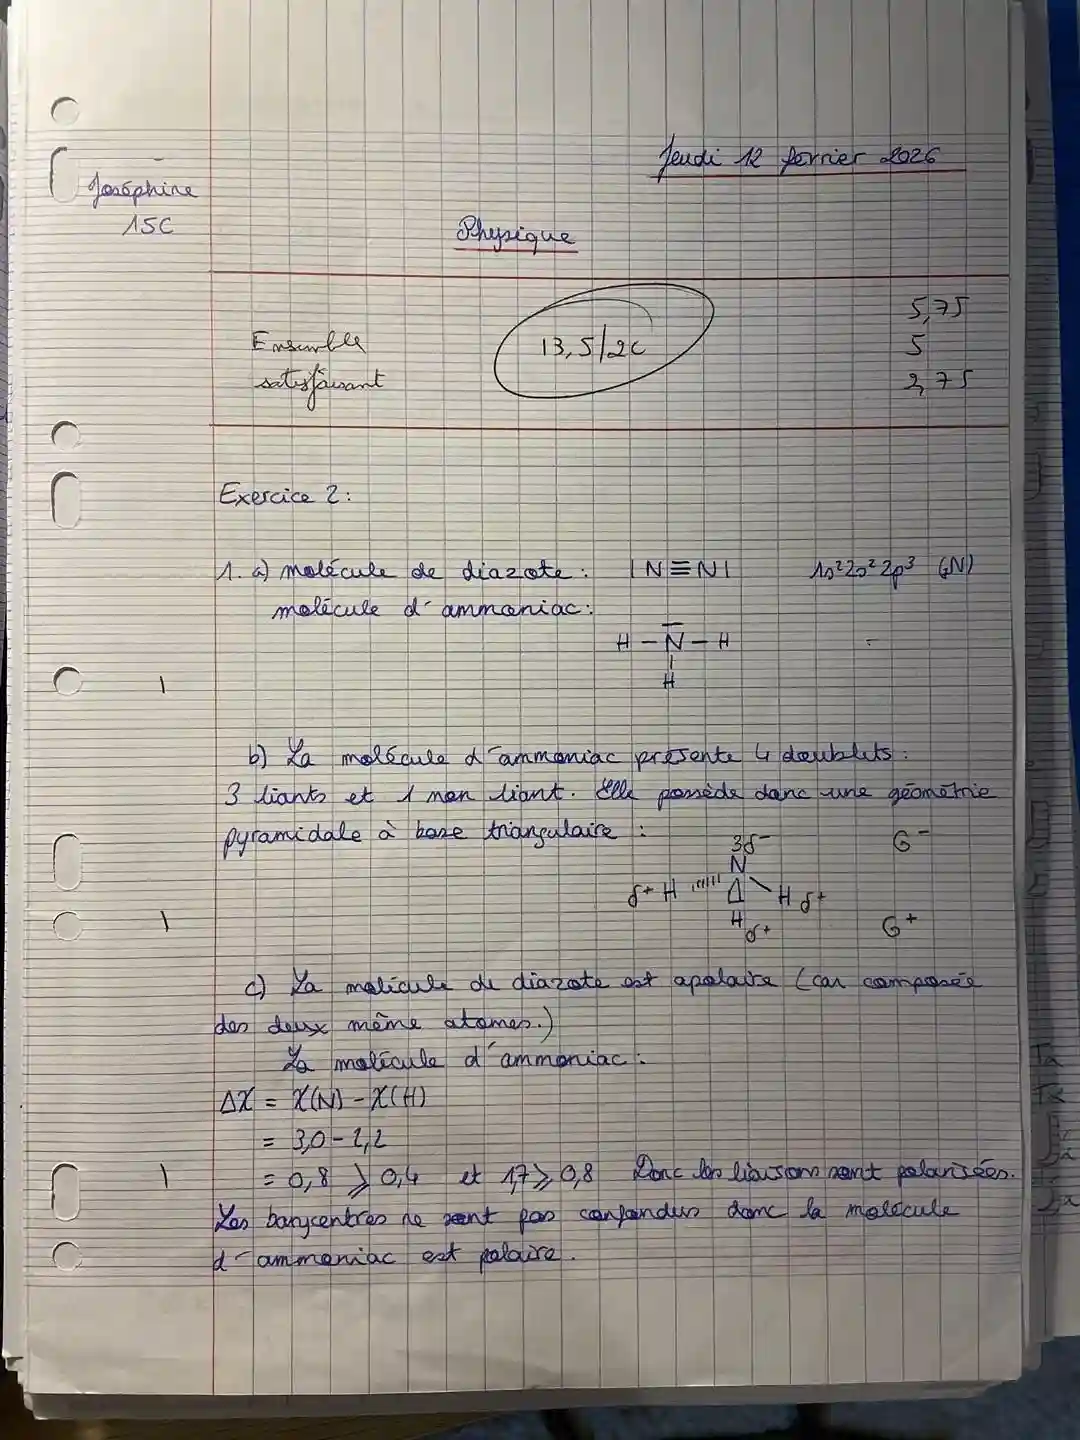 Jeudi 12 février 2026
Joséphine
1SC
Physique
5,75
Ensemble
13,5/20
5
satisfaisant
2,75
Exercice 2 :
1. a) molécule de diazote : |N≡N| 1s² 2s² 2p³ (N)
molécule d'ammoniac :
H – N – H
|
H
1
b) La molécule d'ammoniac présente 4 doublets :
3 liants et 1 non liant. Elle possède donc une géométrie
pyramidale à base triangulaire :
3δ⁻ G⁻
N
δ⁺ H H δ⁺
H G⁺
δ⁺
1
c) La molécule de diazote est apolaire (car composée
des deux même atomes.)
La molécule d'ammoniac :
ΔX = X(N) – X(H)
= 3,0 – 2,2
1
= 0,8 ⩾ 0,4 et 1,7 ⩾ 0,8 Donc les liaisons sont polarisées.
Les barycentres ne sont pas confondus donc la molécule
d'ammoniac est polaire.